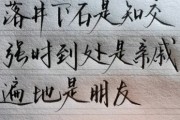 落井下石是知交
强时到处是亲戚
遍地是朋友